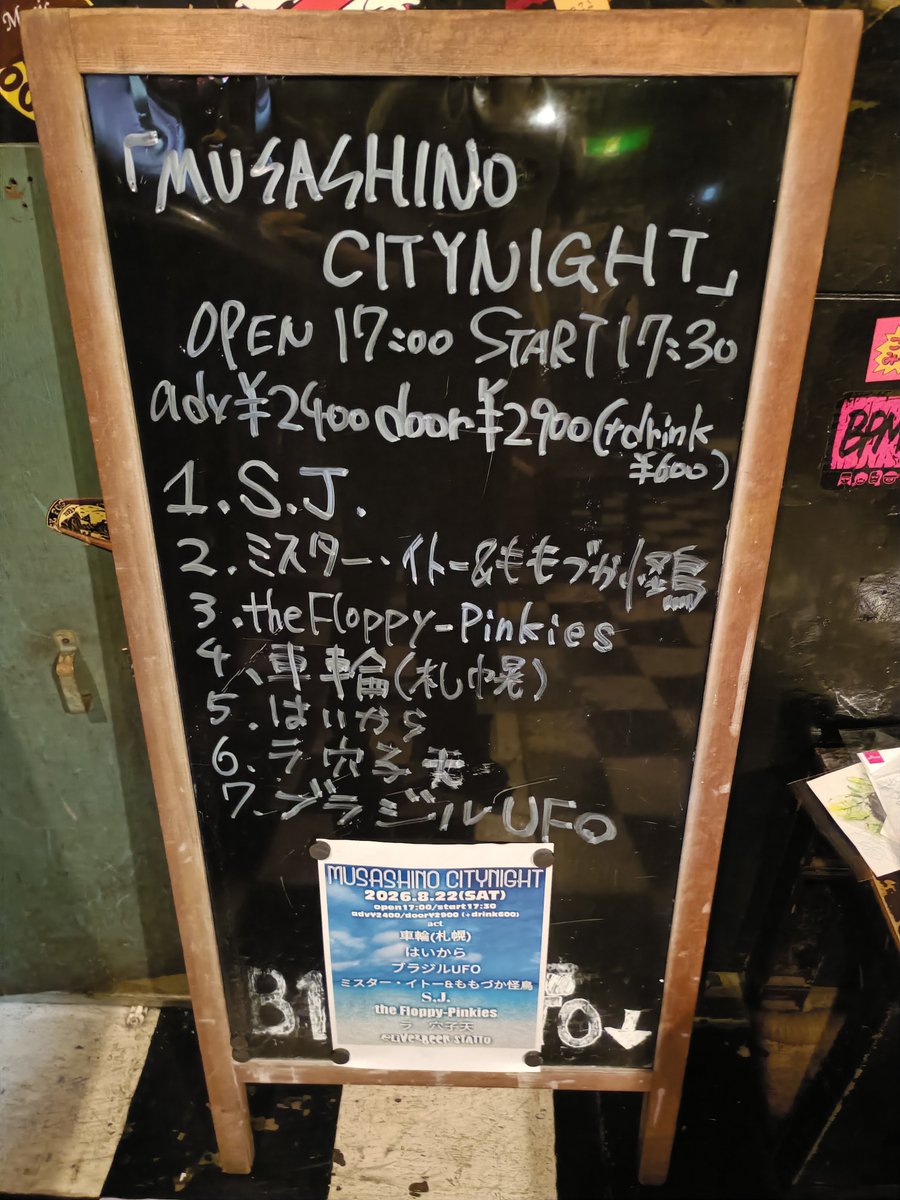 「MUSASHINO
CITYNIGHT」
OPEN 17:00 START 17:30
adv ¥2400 door ¥2900 (+drink
¥600)
1. S.J.
2. ミスター・イトー&ももづか怪鳥
3. the Floppy-Pinkies
4、車輪(札幌)
5. はいから
6、ラ 穴子天
7. ブラジルUFO
MUSASHINO CITYNIGHT
2026.8.22(SAT)
open17:00/start17:30
adv¥2400/door¥2900 (+drink600)
act
車輪(札幌)
はいから
ブラジルUFO
ミスター・イトー&ももづか怪鳥
S.J.
the Floppy-Pinkies
ラ 穴子天
B1
↓